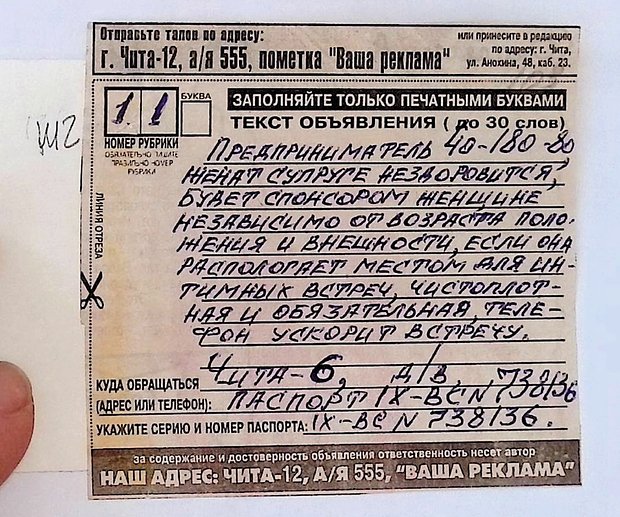 Отправьте талон по адресу:
г. Чита-12, а/я 555, пометка "Ваша реклама"
или принесите в редакцию
по адресу: г. Чита,
ул. Анохина, 48, каб. 23.
11
БУКВА
НОМЕР РУБРИКИ
ОБЯЗАТЕЛЬНО ПИШИТЕ
ПРАВИЛЬНО НОМЕР
РУБРИКИ
ЗАПОЛНЯЙТЕ ТОЛЬКО ПЕЧАТНЫМИ БУКВАМИ
ТЕКСТ ОБЪЯВЛЕНИЯ ( до 30 слов)
ПРЕДПРИНИМАТЕЛЬ 40-180-80,
ЖЕНАТ СУПРУГЕ НЕЗДОРОВИТСЯ,
БУДЕТ СПОНСОРОМ ЖЕНЩИНЕ
НЕЗАВИСИМО ОТ ВОЗРАСТА ПОЛО-
ЖЕНИЯ И ВНЕШНОСТИ, ЕСЛИ ОНА
РАСПОЛОГАЕТ МЕСТОМ ДЛЯ ИН-
ТИМНЫХ ВСТРЕЧ, ЧИСТОПЛОТ-
НАЯ И ОБЯЗАТЕЛЬНАЯ, ТЕЛЕ-
ФОН УСКОРИТ ВСТРЕЧУ.
ЧИТА-6, Д/В,
КУДА ОБРАЩАТЬСЯ
(АДРЕС ИЛИ ТЕЛЕФОН): ПАСПОРТ IX-ВС N 738136
УКАЖИТЕ СЕРИЮ И НОМЕР ПАСПОРТА: IX-ВС N 738136.
ЛИНИЯ ОТРЕЗА
за содержание и достоверность объявления ответственность несет автор
НАШ АДРЕС: ЧИТА-12, А/Я 555, "ВАША РЕКЛАМА"